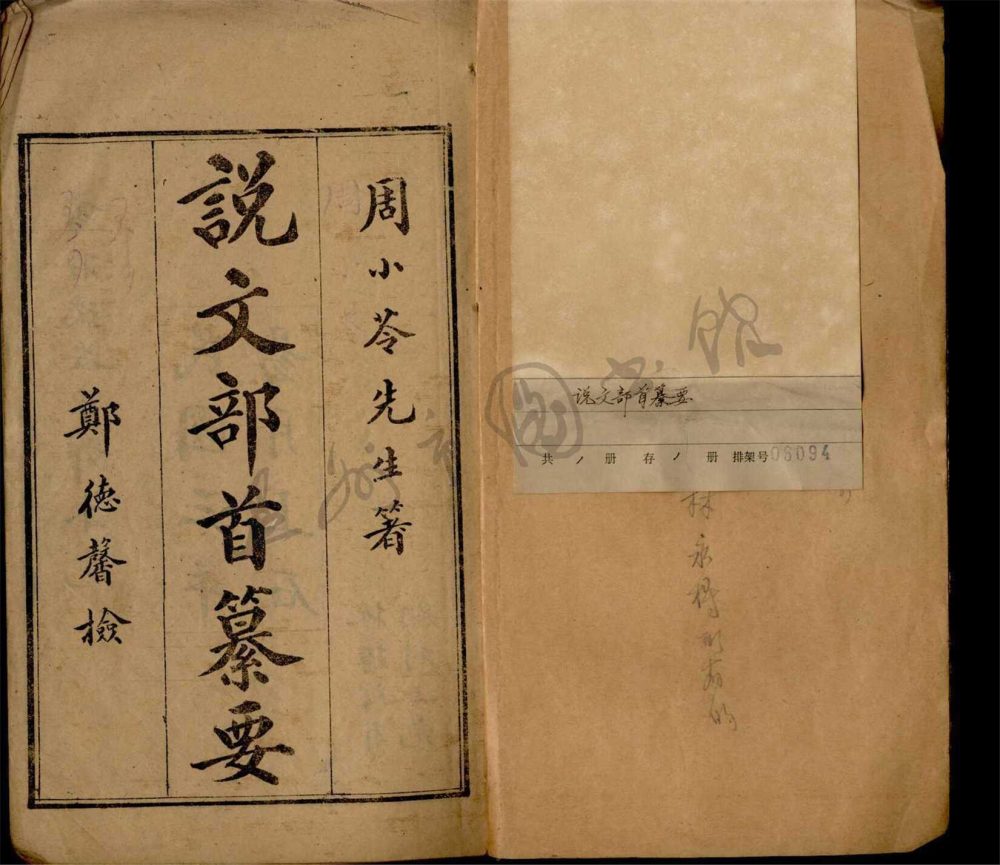 周小苓先生箸
説文部首纂要
鄭德馨檢
说文部首纂要
共 1 册 存 1 册 排架号 06094